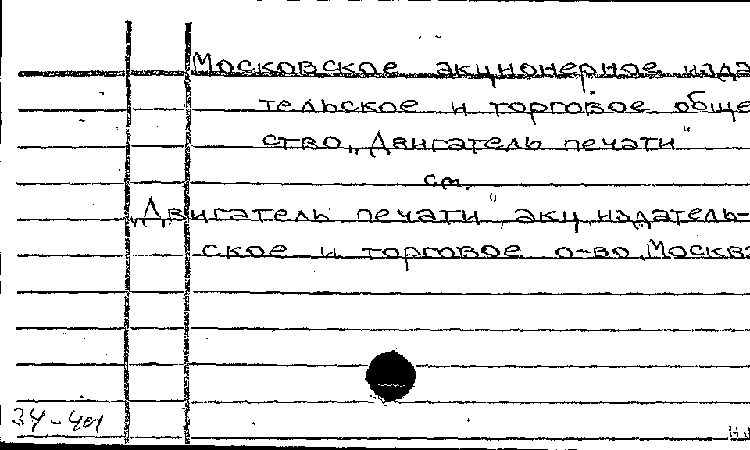 Московское акционерное изда
тельское и торговое обще
ство „Двигатель печати"
см.
„Двигатель печати" акц. издатель-
ское и торговое о-во, Москва
34-401